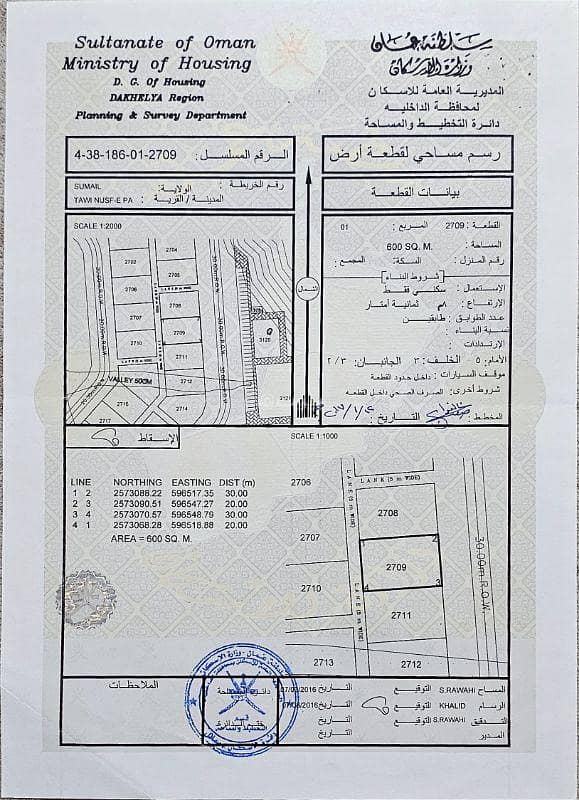 Sultanate of Oman
Ministry of Housing
D. G. Of Housing
DAKHELYA Region
Planning & Survey Department
سلطنة عمان
وزارة الإسكان
المديرية العامة للاسكان
لمحافظة الداخليه
دائرة التخطيط والمساحة
4-38-186-01-2709 الرقم المسلسل :
رسم مساحي لقطعة أرض
SUMAIL الولاية: رقم الخريطة :
TAWI NUSF-E PA المدينة / القرية :
بيانات القطعة
SCALE 1:2000
القطعة : 2709 المربع : 01
المساحة : 600 SQ. M.
رقم المنزل : السكة: المجمع :
شروط البناء
الإستعمال : سكني فقط
الارتفاع : ٨م ثمانية أمتار
عدد الطوابق : طابقين
نسبة البناء :
الإرتدادات :
الأمام: ٥ الخلف: ٣ الجانبان: ٢/٣
موقف السيارات : داخل حدود القطعة
شروط أخرى: الصرف الصحي داخل القطعة
المخطط : التاريخ :
الشمال
2702
2704
2705
2706
2707
2708
2710
2709
2711
2712
2714
2715
2716
3128
3121
VALLEY 50CM
الإسقاط :
SCALE 1:1000
LINE NORTHING EASTING DIST (m)
1 2 2573088.22 596517.35 30.00
2 3 2573090.51 596547.27 20.00
3 4 2573070.57 596548.79 30.00
4 1 2573068.28 596518.88 20.00
AREA = 600 SQ. M.
2706
LANE (5 m WIDE)
LANE (5 m WIDE)
2708
2707
2
2709
4
3
2710
2711
LANE (5 m WIDE)
30.00m R.O.W.
2713
2712
الملاحظات
المساح S.RAWAHI التوقيع التاريخ 07/03/2016
الرسام KHALID التوقيع التاريخ
التدقيق S.RAWAHI التوقيع التاريخ
المدير